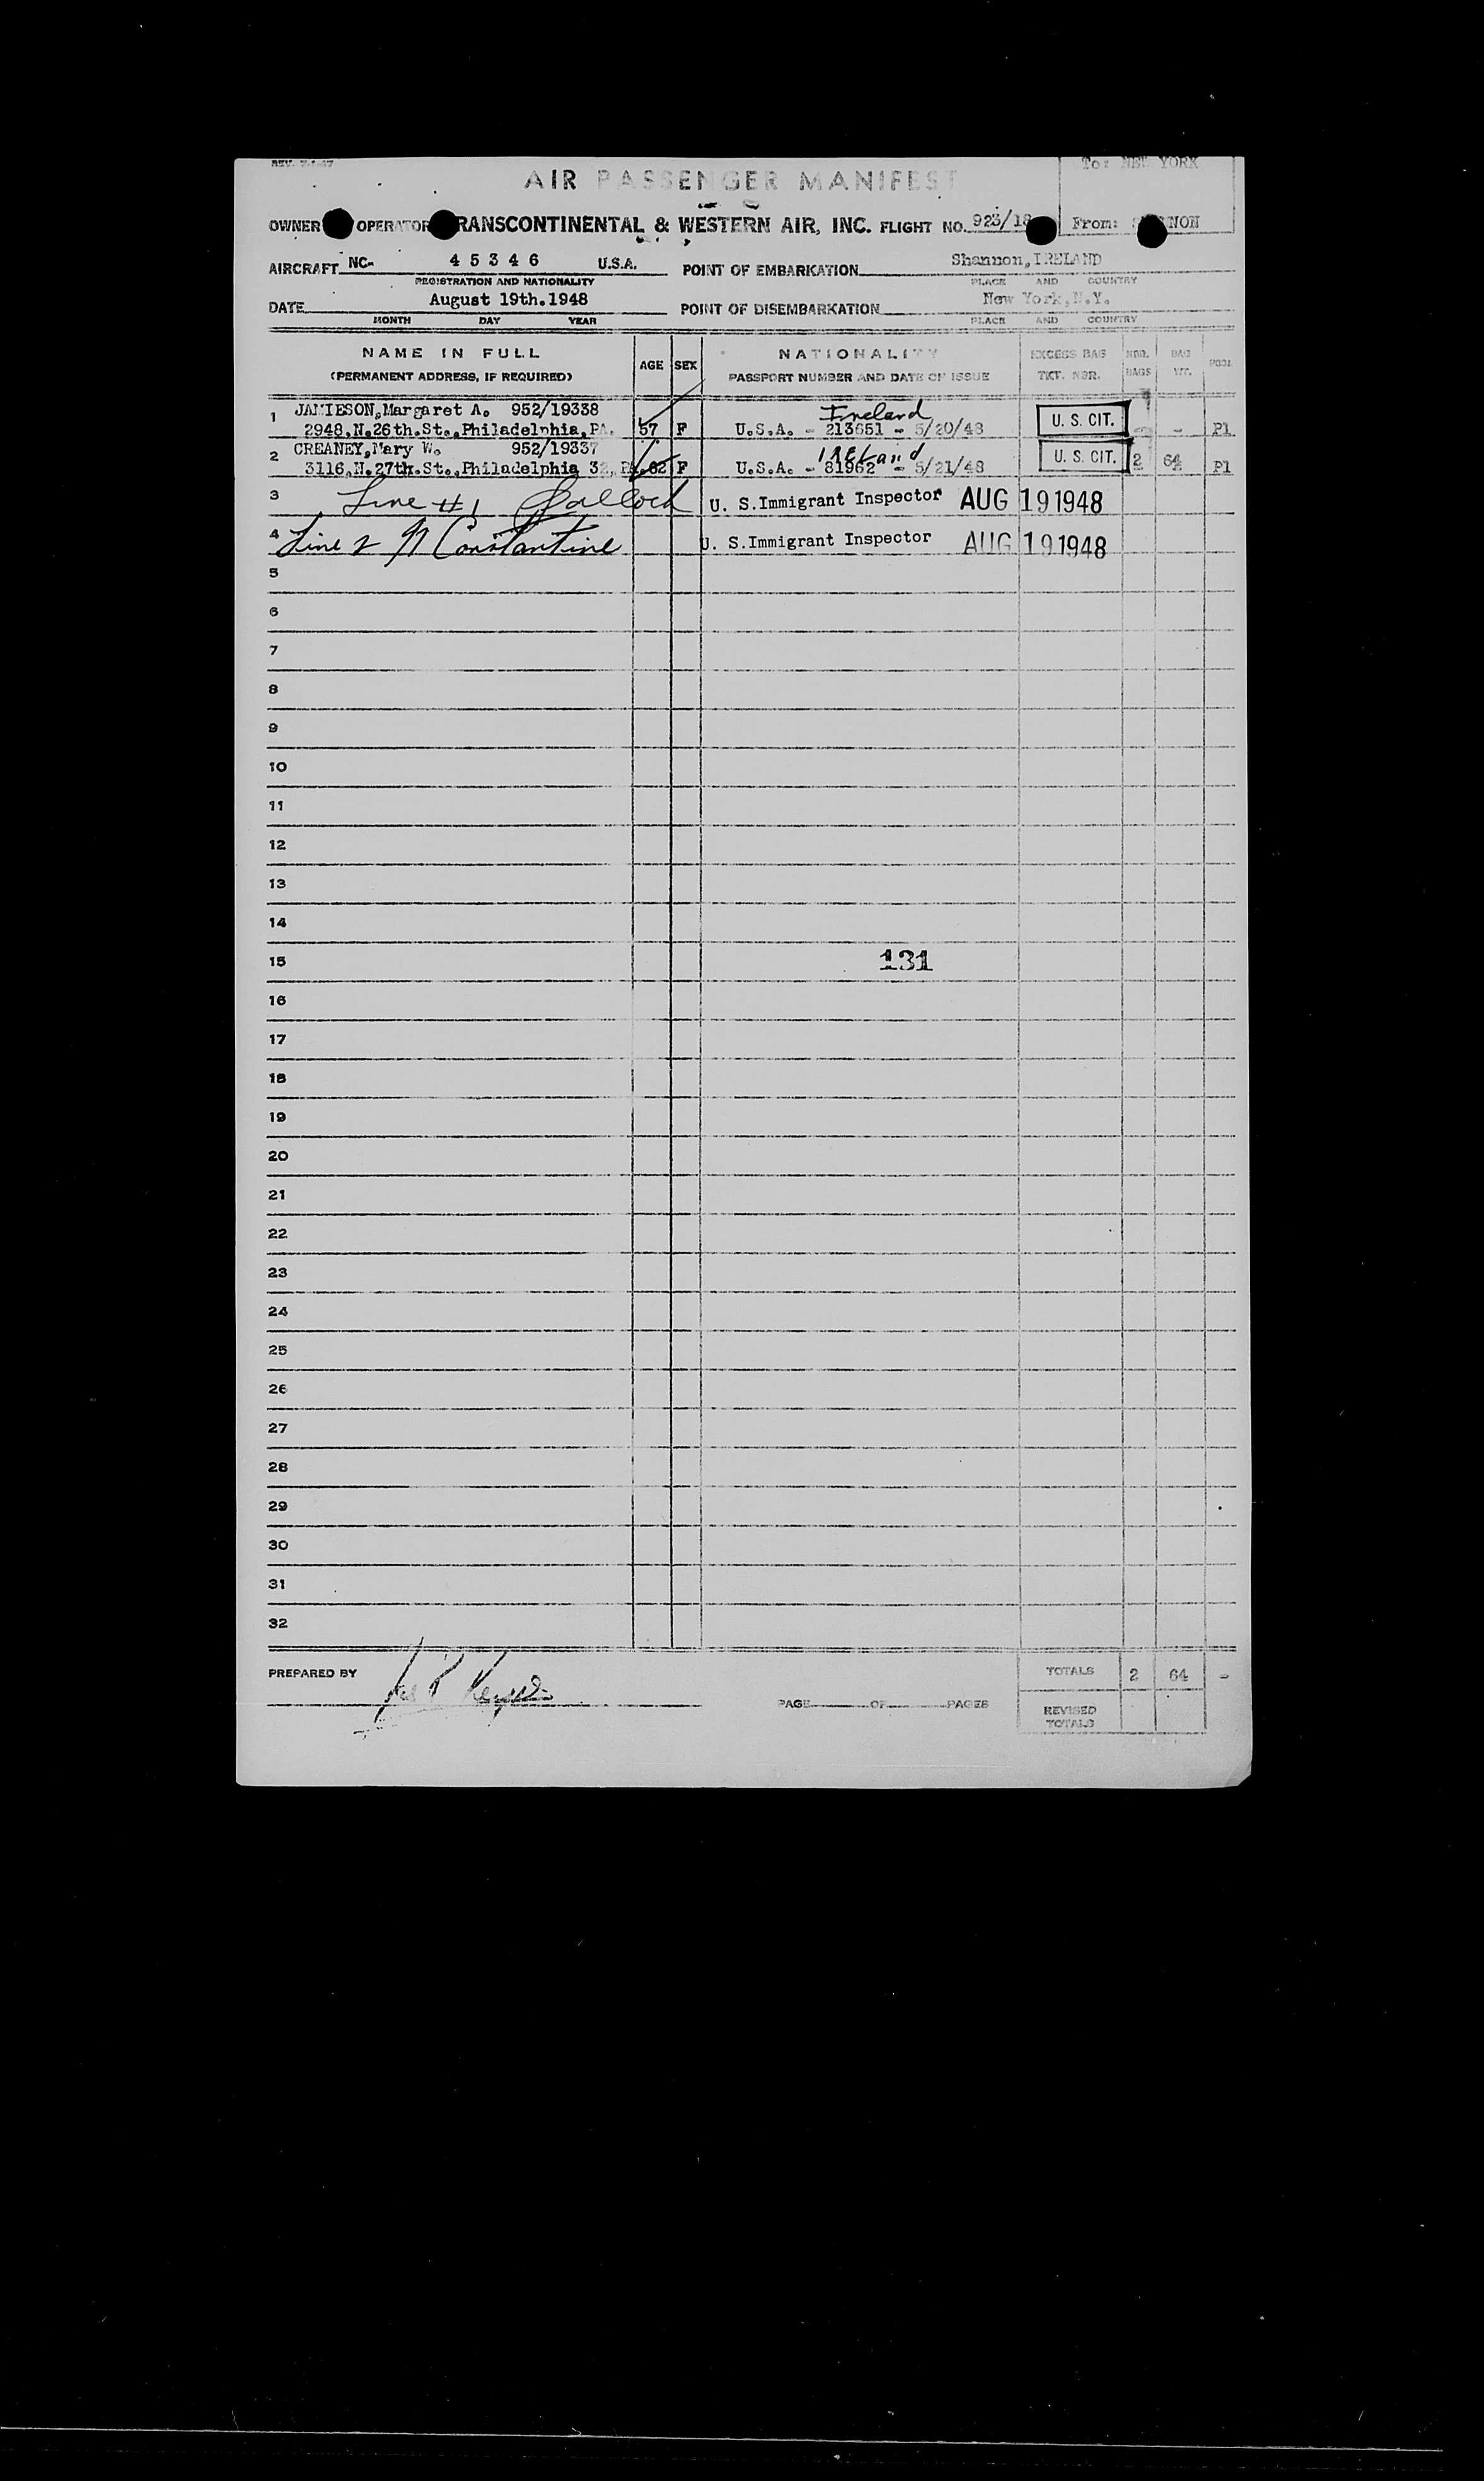 To: NEW YORK
AIR PASSENGER MANIFEST
OWNER OPERATOR TRANSCONTINENTAL & WESTERN AIR, INC. FLIGHT NO. 923/18 From: NON
AIRCRAFT NC- 4 5 3 4 6 U.S.A. POINT OF EMBARKATION Shannon, IRELAND
REGISTRATION AND NATIONALITY PLACE AND COUNTRY
DATE August 19th.1948 POINT OF DISEMBARKATION New York, N.Y.
MONTH DAY YEAR PLACE AND COUNTRY
NAME IN FULL AGE SEX NATIONALITY EXCESS BAG NBR. BAG
(PERMANENT ADDRESS, IF REQUIRED) PASSPORT NUMBER AND DATE OF ISSUE TKT. NBR. BAGS WT.
1 JAMIESON, Margaret A. 952/19338 Ireland
2948.N.26th.St., Philadelphia, PA. 57 F U.S.A. - 213651 - 5/20/48 U. S. CIT. - - P1
2 CREANEY, Mary W. 952/19337 IReland
3116.N.27th.St., Philadelphia 32, PA. 62 F U.S.A. - 81962 - 5/21/48 U. S. CIT. 2 64 P1
3 Line #1 U. S. Immigrant Inspector AUG 19 1948
4 Line 2 N Constantine U. S. Immigrant Inspector AUG 19 1948
5
6
7
8
9
10
11
12
13
14
15 131
16
17
18
19
20
21
22
23
24
25
26
27
28
29
30
31
32
PREPARED BY TOTALS 2 64 -
PAGE OF PAGES REVISED
TOTALS